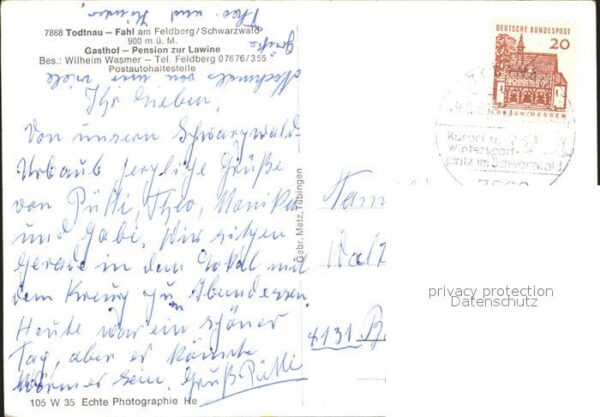 7868 Todtnau – Fahl am Feldberg/Schwarzwald
900 m ü. M.
Gasthof – Pension zur Lawine
Bes.: Wilhelm Wasmer – Tel. Feldberg 07676/355
Postautohaltestelle
Ihr Lieben,
Von unserm Schwarzwald
Urlaub herzliche Grüße
von Pütti, Theo, Monika
und Gabi. Wir sitzen
gerade in dem Lokal mit
dem Kreuz zu Abendessen.
Heute war ein schöner
Tag, aber er könnte
wärmer sein. Gruß Pütti
Nochmals von uns viele
Grüße
Theo und Kinder
105 W 35 Echte Photographie He
Gebr. Metz, Tübingen
DEUTSCHE BUNDESPOST
20
LORSCH/HESSEN
Kurort u.
Wintersport-
platz im Schwarzwald
7868
Fam
8131 B
privacy protection
Datenschutz